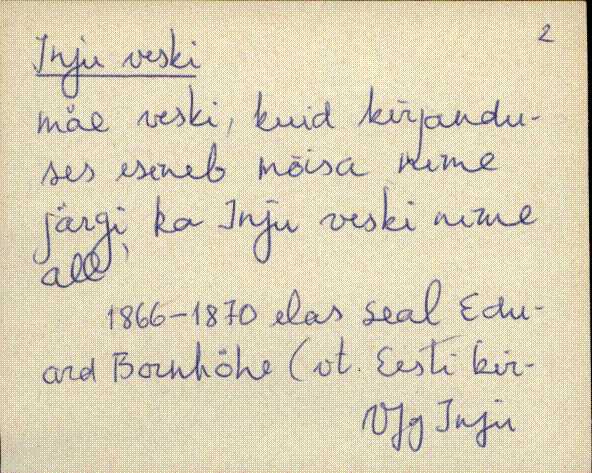 2
Inju veski
mäe veski, kuid kirjandu-
ses esineb mõisa nime
järgi ka Inju veski nime
all
1866-1870 elas seal Edu-
ard Bornhöhe (vt. Eesti kir-
VJg Inju